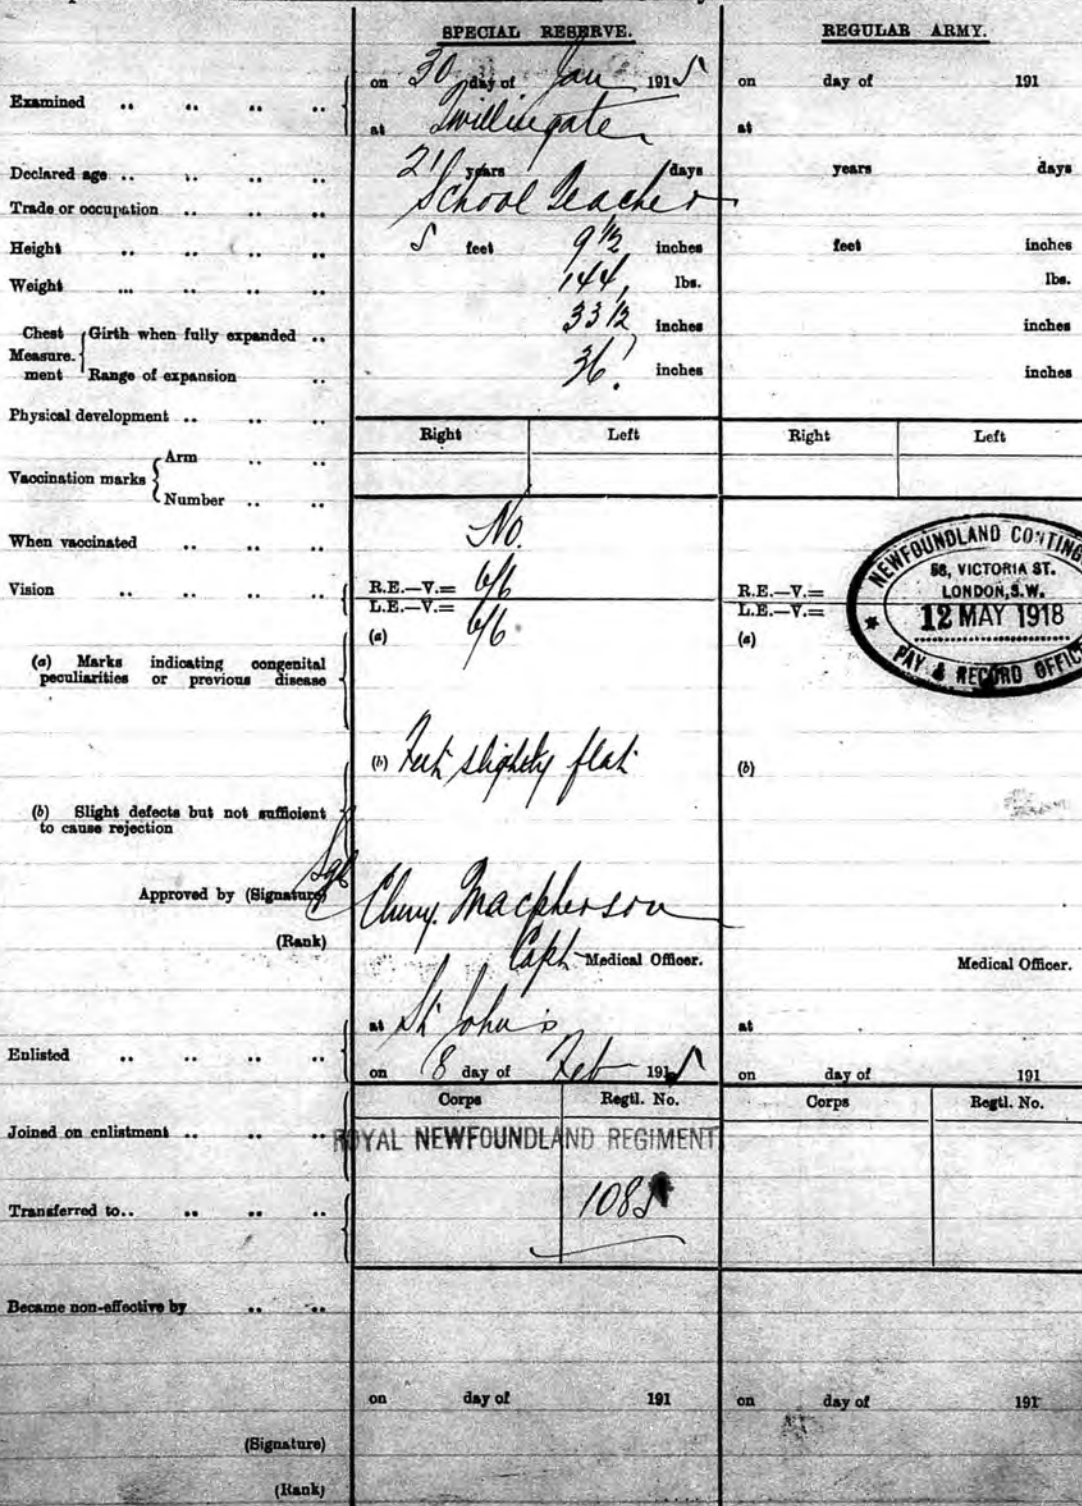 SPECIAL RESERVE. REGULAR ARMY.
Examined .. .. .. .. on 30 day of Jan 1915 on day of 191
at Twillingate at
Declared age .. .. .. .. 21 years days years days
Trade or occupation .. .. .. School Teacher
Height .. .. .. .. 5 feet 9 1/2 inches feet inches
Weight ... .. .. .. 144 lbs. lbs.
Chest Measure. ment { Girth when fully expanded .. 33 1/2 inches inches
Range of expansion .. 36 inches inches
Physical development .. .. ..
Right Left Right Left
Vaccination marks { Arm .. ..
Number .. ..
When vaccinated .. .. .. No.
Vision .. .. .. .. R.E.—V.= 6/6 R.E.—V.=
L.E.—V.= 6/6 L.E.—V.=
NEWFOUNDLAND CONTING
58, VICTORIA ST.
LONDON, S.W.
12 MAY 1918
PAY & RECORD OFFICE
(a) Marks indicating congenital (a) (a)
peculiarities or previous disease
(b) Feet slightly flat (b)
(b) Slight defects but not sufficient
to cause rejection
Sgd
Approved by (Signature) Cluny. Macpherson
(Rank) Capt Medical Officer. Medical Officer.
at St John's at
Enlisted .. .. .. .. on 8 day of Feb 1915 on day of 191
Corps Regtl. No. Corps Regtl. No.
Joined on enlistment .. .. .. ROYAL NEWFOUNDLAND REGIMENT
Transferred to.. .. .. .. 1085
Became non-effective by .. ..
on day of 191 on day of 191
(Signature)
(Rank)